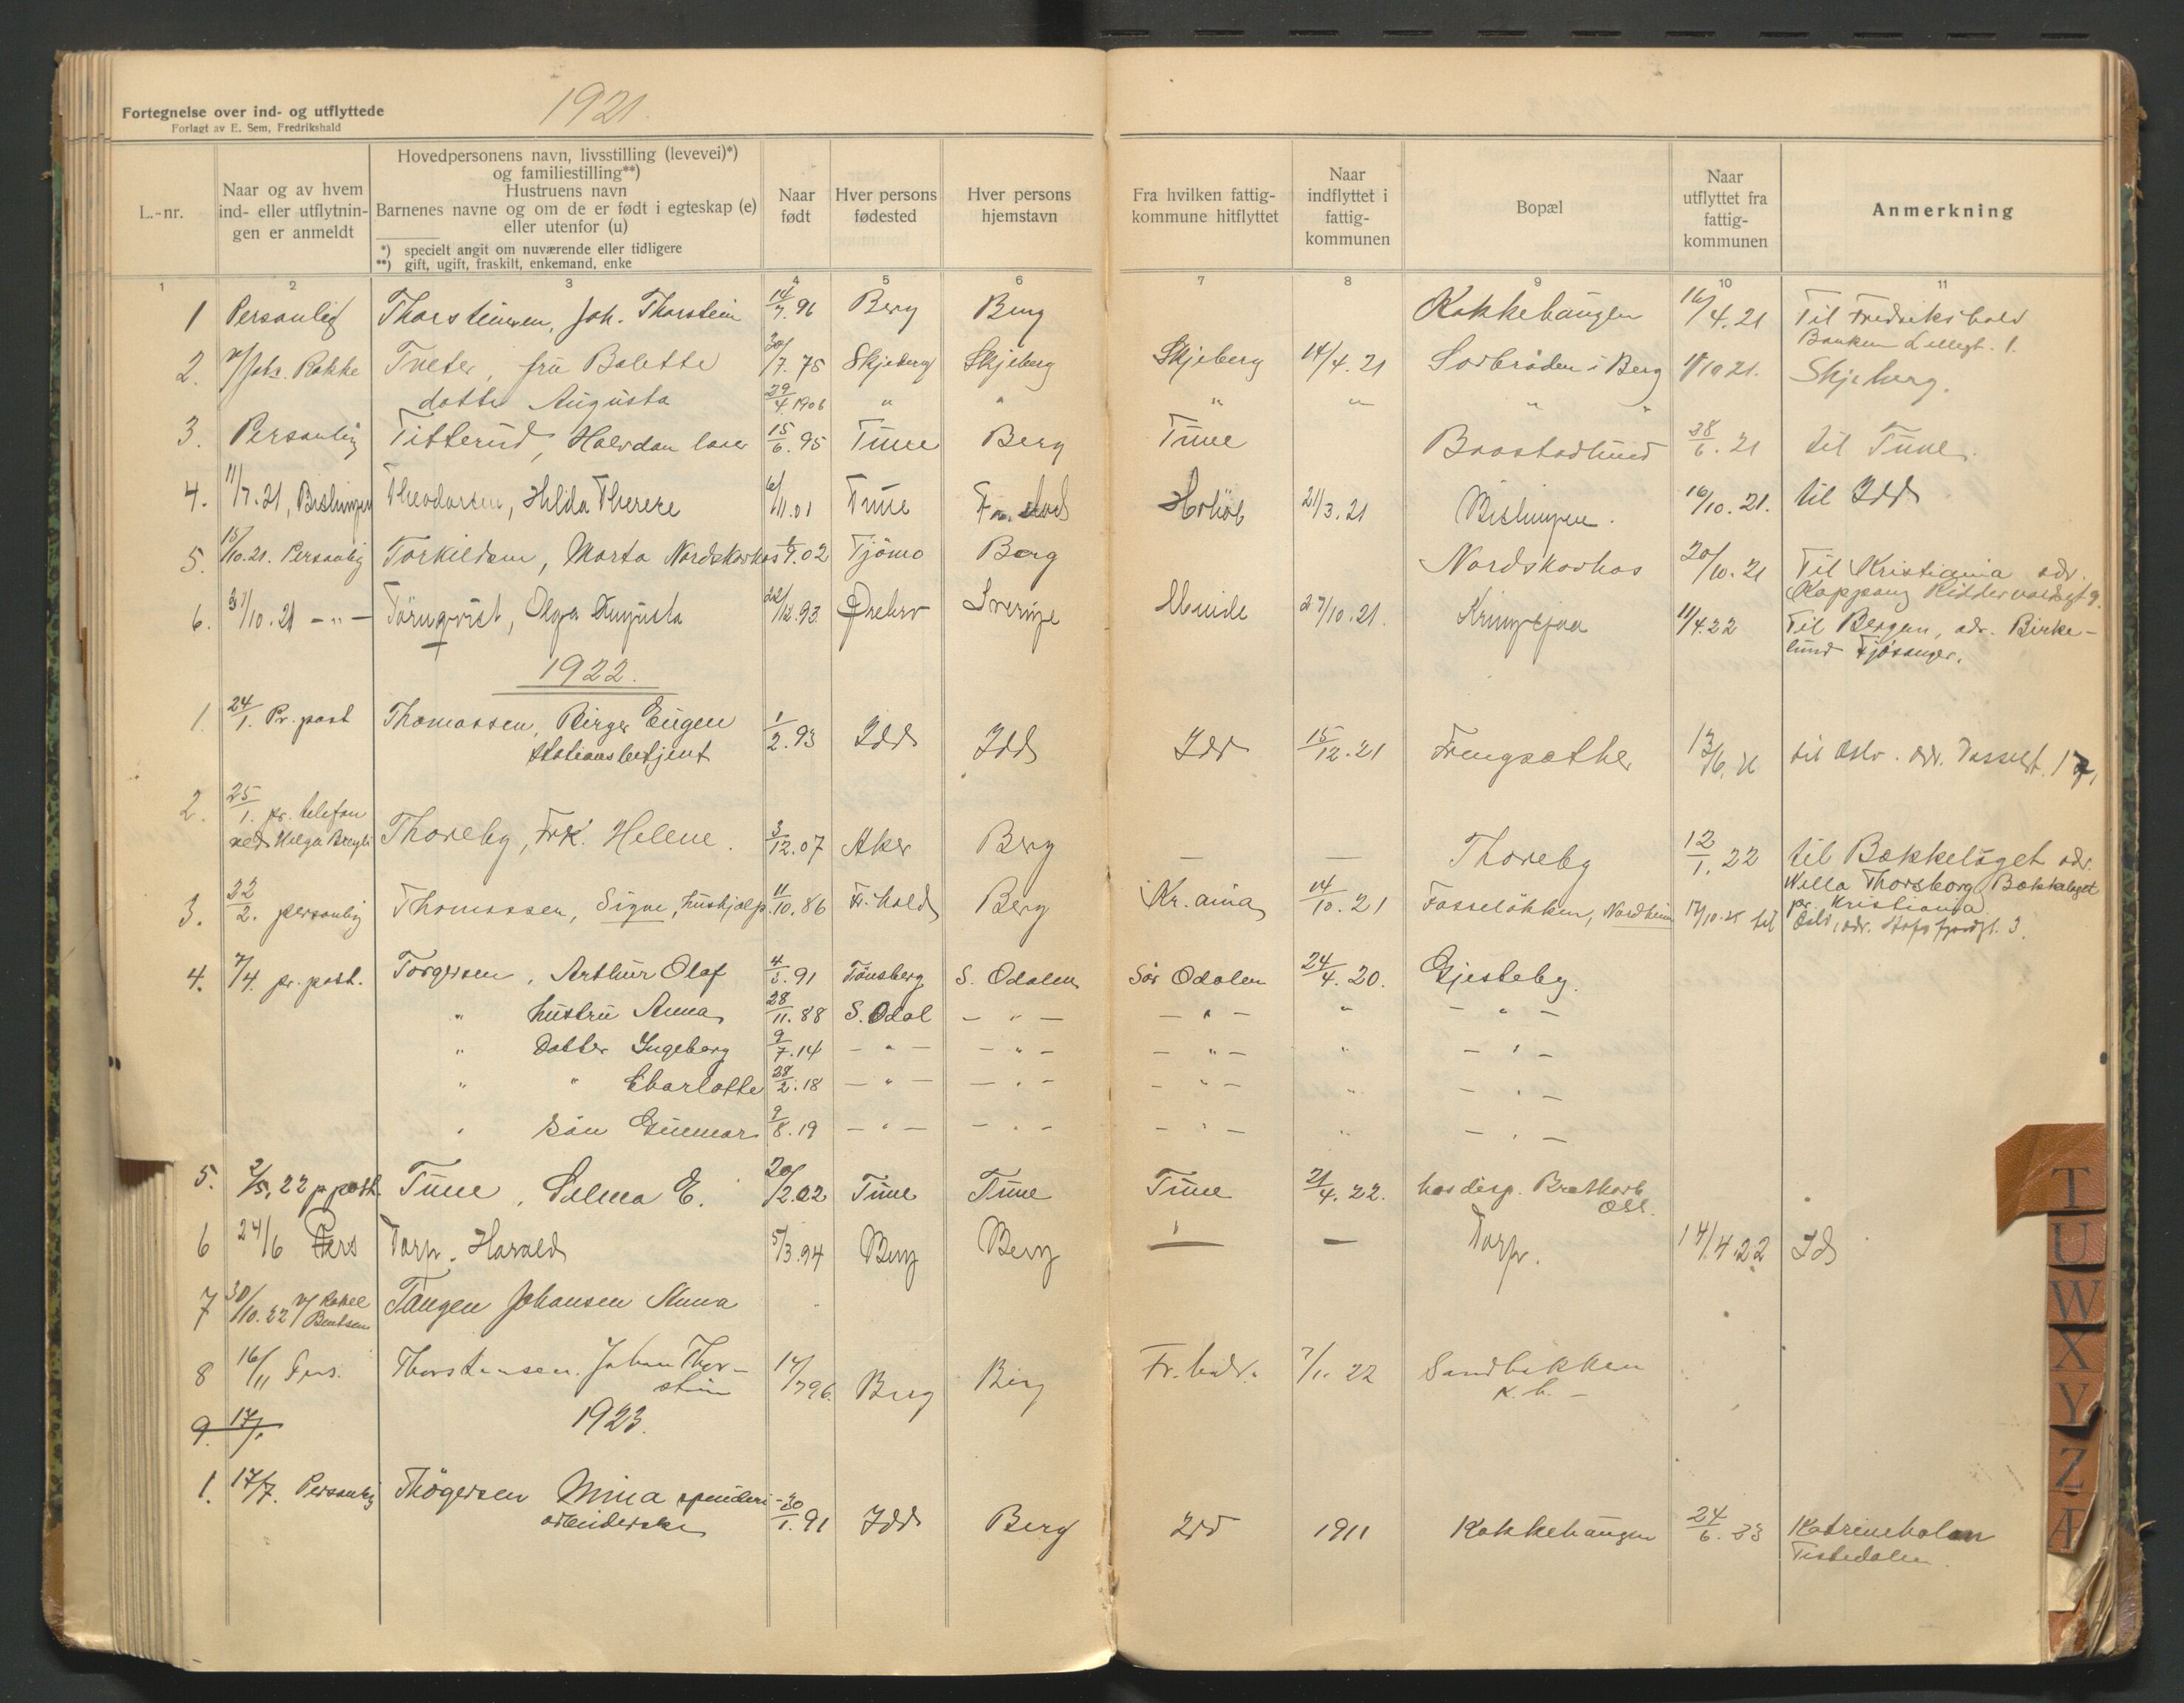 Fortegnelse over ind- og utflyttede
Forlagt av E. Sem, Fredrikshald
1921.
L.-nr.
Naar og av hvem
ind- eller utflytnin-
gen er anmeldt
Hovedpersonens navn, livsstilling (levevei)*)
og familiestilling**)
Hustruens navn
Barnenes navne og om de er født i egteskap (e)
eller utenfor (u)
*) specielt angit om nuværende eller tidligere
**) gift, ugift, fraskilt, enkemand, enke
Naar
født
Hver persons
fødested
Hver persons
hjemstavn
Fra hvilken fattig-
kommune hitflyttet
Naar
indflyttet i
fattig-
kommunen
Bopæl
Naar
utflyttet fra
fattig-
kommunen
Anmerkning
1 2 3 4 5 6 7 8 9 10 11
1 Personlig Thorstensen, Joh. Thorstein 14/7.96 Berg Berg Kokkehaugen 16/4.21 Til Fredrikshald
Banken Lillegt. 1.
2. v/Johs. Rokke Tveter, fru Bolette 30/7.75 Skjeberg Skjeberg Skjeberg 14/4.21 Sorbrøden i Berg 1/10 21. Skjeberg.
datter Augusta 29/4.1906 " " " " " "
3. Personlig Titterud, Halvdan 15/6.95 Tune Berg Tune Baastadlund 28/6.21 til Tune.
4. 11/7.21, Bislingen Theodorsen, Hilda Therese 6/11.01 Tune Fr.stad 21/3.21 Bislingen. 16/10.21. til Idd
5. 15/10.21. Personlig Torkildsen, Marta Nordskovhos 02 Tjömo Berg Nordskovhos 20/10.21 Til Kristiania adr.
Kappang Riddervoldsgt 9.
6. 31/10.21 - " - Törnqvist, Olga Augusta 22/12.93. Ørebro Sverige Moride 27/10.21. Kringsjaa 11/4.22 Til Bergen, adr. Birke-
lund Fjösanger.
1922.
1. 24/1. Pr. post Thomassen, Birger Eugen 1/2.93 Idd Idd Idd 15/12.21 Frengsæther 13/6.26 til Oslo. adr. 17,
Stationsbetjent
2. 25/1. pr. telefon
ved Helga Thoreby, Frk. Helene. 3/12.07 Aker Berg — — Thoreby 12/1.22 til Bækkelaget adr.
Villa Thorsborg Bækkelaget
pr. Kristiania
3. 22/2. personlig Thomassen, Signe, hushjælp. 11/10.86 Fr.hald Berg Kr.ania 14/10.21 Fosseløkken, Nordheim 17/10.25 til Oslo, adr. 3.
4. 7/4. pr. post. Torgersen, Arthur Olaf 4/5.91 Tönsberg S. Odalen Sör Odalen 24/4.20. Gjesteby.
" hustru Anna 28/11.88 S. Odal - " - - " - " - " -
" Datter Ingeborg 9/7.14 - " - - " - - " - " - " -
" " Charlotte 28/2.18 - " - - " - - " - " - " -
" Sön Gunnar 9/8.19 - " - - " - - " - " - " -
5. 2/5.22 p post. Tune, Selma E. 20/2.02 Tune Tune Tune 21/4.22. hos disp. Bratkorb
6 24/6 Pers Torp. Harald 5/3.94 Berg Berg — — Torp. 14/4 22 Id
7 30/10.22 v/ Rakel
Bentsen Tangen Johansen Anna
8 16/11 Pers. Thorstensen. Johan Thor-
stein 14/7 96. Berg Berg Fr.hald. 7/1. 22 Sandbakken
K. h. -
9. 17/. 1923.
1. 17/7. Personlig Thögersen Mina spinderi-
arbeiderske 30/1.91 Idd Berg Idd 1911 Kokkehaugen 24/6.23 Katrineholm
Tistedalen.
T
U
W
X
Y
Z
Æ